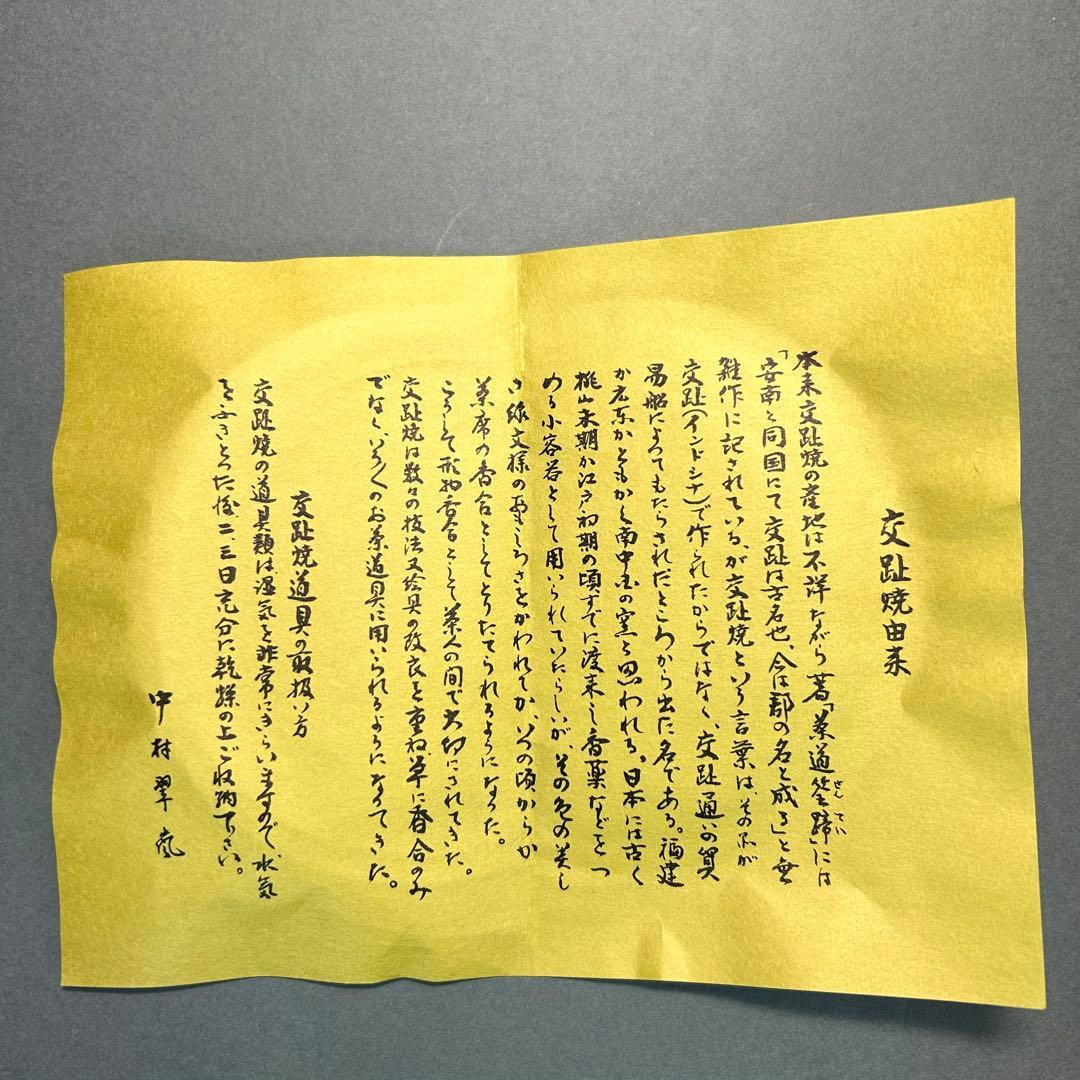 交趾焼由来
本来交趾焼の産地は不詳ながら著「茶道筌蹄」には
せん てい
「安南と同国にて交趾は古名也、今は郡の名と成る」と無
雑作に記されている、が交趾焼という言葉は、その品が
交趾(インドシナ)で作られたからではなく、交趾通いの貿
易船によってもたらされたところから出た名である。福建
か広東かともかく南中国の窯と思われる。日本には古く
桃山末期か江戸初期の頃すでに渡来し香薬などをつ
める小容器として用いられていたらしいが、その色の美し
さ、文様のおもしろさをかわれてか、いつの頃からか
茶席の香合としてとりたてられるようになった。
こうして形物香合として茶人の間で大切にされてきた。
交趾焼は数々の技法又絵具の改良を重ね、単に香合のみ
でなく、いろいろのお茶道具に用いられるようになってきた。
交趾焼道具の取扱い方
交趾焼の道具類は湿気を非常にきらいますので、水気
をふきとった後二、三日充分に乾燥の上ご収納下さい。
中村翠嵐